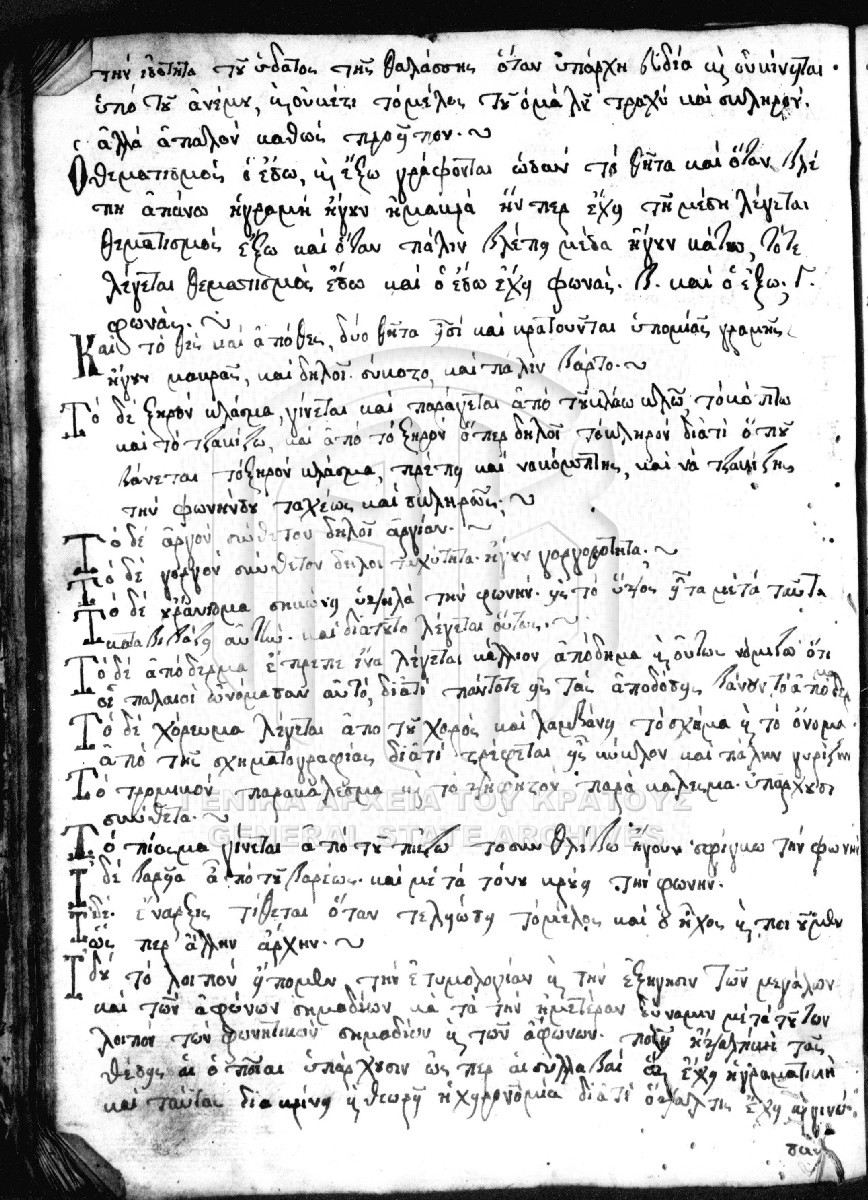 τὴν ἰσότητα τοῦ ὕδατος τῆς θαλάσσης ὅταν ὑπάρχη εὐδία καὶ οὐ κινῆται
ὑπὸ τοῦ ἀνέμου, καὶ οὐκέτι τὸ μέλος τοῦ ὁμαλοῦ τραχὺ καὶ σκληρόν.
ἀλλὰ ἁπαλὸν καθὼς προεῖπον.
Ὁ θεματισμὸς ὁ ἔσω, καὶ ἔξω γράφονται ὡσὰν τὸ θῆτα καὶ ὅταν βλέ
πη ἀπάνω ἡ γραμὴ ἤγουν ἡ μακρὰ ἥν περ ἔχη τῆ μέση λέγεται
θεματισμὸς ἔξω καὶ ὅταν πάλιν βλέπη μέσα ἤγουν κάτω, τότε
λέγεται θεματισμὸς ἔσω καὶ ὁ ἔσω ἔχη φωνάς. β. καὶ ὁ ἔξω. γ.
φωνάς.
Καὶ τὸ θὲς καὶ ἀπόθες, δύο θῆτα εἰσὶ καὶ κρατοῦνται ὑπὸ μίας γραμῆς
ἤγουν μακρᾶς, καὶ δηλοῖ. σήκοτο, καὶ πάλιν βάρτο.
Τὸ δὲ ξηρὸν κλάσμα, γίνεται καὶ παράγεται ἀπὸ τοῦ κλάω κλῶ, τὸ κόπτω
καὶ τὸ τζακίζω, καὶ ἀπὸ τὸ ξηρὸν ὅπερ δηλοῖ τὸ σκληρὸν διατὶ ὅπου
βάνεται τὸ ξηρὸν κλάσμα, πρέπη καὶ νὰ κόπτης, καὶ νὰ τζακίζης
τὴν φωνήν σου ταχέως καὶ σκληρῶς.
Τὸ δὲ ἀργὸν σύνθετον δηλοῖ ἀργίαν.
Τὸ δὲ γοργὸν σύνθετον δειλοῖ ταχύτητα ἤγουν γοργότητα.
Τὸ δὲ οὐράνισμα σηκώνη ὑψηλὰ τὴν φωνὴν εἰς τὸ ὕψος εἶτα μετὰ ταῦτα
καταβιβάζη αὐτήν. καὶ διὰ τοῦτο λέγεται οὕτως.
Τὸ δὲ ἀπόδερμα ἔπρεπε ἵνα λέγεται κάλλιον ἀπόδημα καὶ οὕτως νομίζω ὅτι
οἱ παλαιοὶ ὠνόμασαν αὐτό, διατὶ πάντοτε εἰς τὰς ἀποδόσης βάνουν τὸ ἀπόδερμα
Τὸ δὲ χόρευμα λέγεται ἀπὸ τοῦ χορὸς καὶ λαμβάνη τὸ σχῆμα καὶ τὸ ὄνομα
ἀπὸ τῆς σχηματογραφίας διατὶ τρέφεται εἰς κύκλον καὶ πάλην γυρίζη
Τὸ τρομικὸν παρακάλεσμα καὶ τὸ ψηφιστὸν παρακάλεσμα ὑπάρχουσι
σύνθετα.
Τὸ πίασμα γίνεται ἀπὸ τοῦ πιέζω τὸ συνθλίβω ἤγουν σφίγκω τὴν φωνὴν
Ἡ δὲ βαρεῖα ἀπὸ τοῦ βαρέως καὶ μετὰ τόνου κρούη τὴν φωνήν.
Ἡ δὲ ἔναρξις τίθεται ὅταν τεληώση τὸ μέλος καὶ ὁ ἦχος καὶ ποιοῦμεν
ὥσπερ ἄλλην ἀρχήν.
Ἰδοὺ τὸ λοιπὸν εἴπομεν τὴν ἐτυμολογίαν καὶ τὴν ἐξήγησιν τῶν μεγάλων
καὶ τῶν ἀφώνων σημαδίων κατὰ τὴν ἡμετέραν δύναμιν μετὰ τούτων
λοιπὸν τῶν φωνητικῶν σημαδίων καὶ τῶν ἀφώνων ποιῆ ἡ ψαλτικὴ τὰς
θέσης αἱ ὁποῖαι ὑπάρχουσιν ὥσπερ αἱ συλλαβαὶ ἃς ἔχη ἡ γραματικὴ
καὶ ταύτας διακρίνη καὶ θεωρῆ ἡ χηρονομία διατὶ ὁ ψάλτις ἔχη